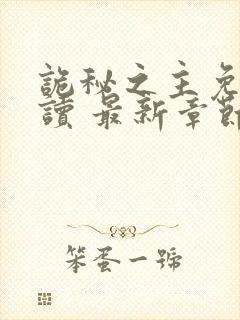 詭秘之主免
讀 最新章節
笨蛋一號